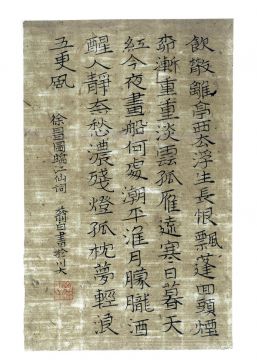 飲散離亭西去浮生長恨飄蓬回頭煙
柳漸重重淡雲孤雁遠寒日暮天
紅今夜畫船何處潮平淮月朦朧酒
醒人靜奈愁濃殘燈孤枕夢輕浪
五更風
徐昌圖臨江仙詞
書於川大